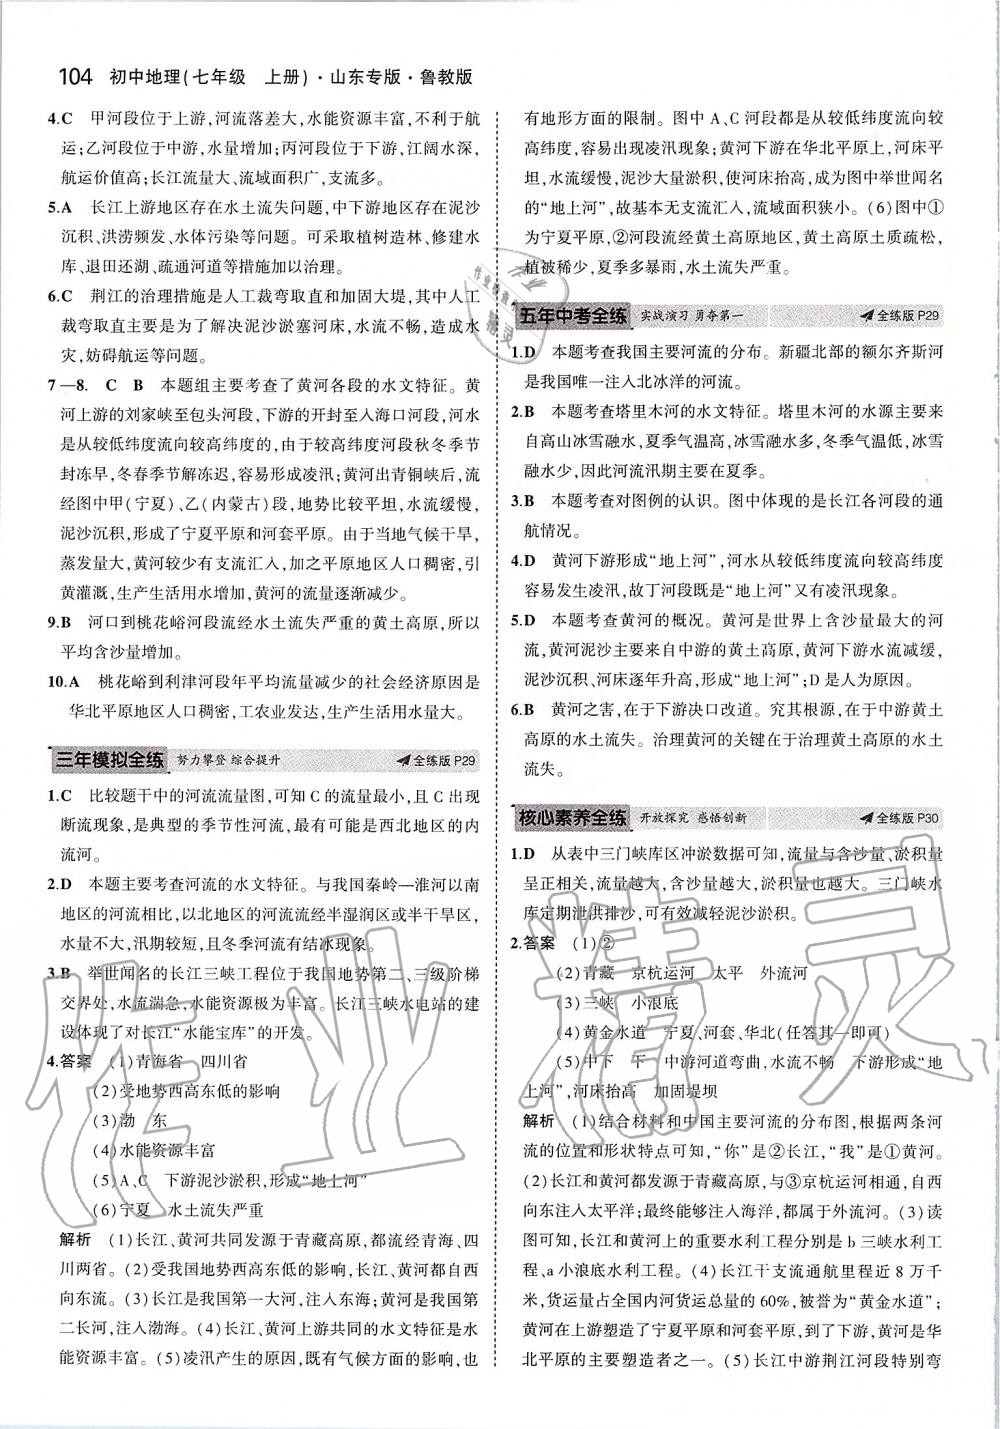 104 初中地理(七年级　上册)·山东专版·鲁教版
4.C　甲河段位于上游,河流落差大,水能资源丰富,不利于航
运;乙河段位于中游,水量增加;丙河段位于下游,江阔水深,
航运价值高;长江流量大、流域面积广,支流多。
5.A　长江上游地区存在水土流失问题,中下游地区存在泥沙
沉积、洪涝频发、水体污染等问题。可采取植树造林、修建水
库、退田还湖、疏通河道等措施加以治理。
6.C　荆江的治理措施是人工裁弯取直和加固大堤,其中人工
裁弯取直主要是为了解决泥沙淤塞河床,水流不畅,造成水
灾、妨碍航运等问题。
7—8. C B　本题组主要考查了黄河各段的水文特征。黄
河上游的刘家峡至包头河段,下游的开封至入海口河段,河水
是从较低纬度流向较高纬度的,由于较高纬度河段秋冬季节
封冻早,冬春季节解冻迟,容易形成凌汛;黄河出青铜峡后,流
经图中甲(宁夏)、乙(内蒙古)段,地势比较平坦,水流缓慢,
泥沙沉积,形成了宁夏平原和河套平原。由于当地气候干旱,
蒸发量大,黄河较少有支流汇入,加之平原地区人口稠密,引
黄灌溉,生产生活用水增加,黄河的流量逐渐减少。
9.B　河口到桃花峪河段流经水土流失严重的黄土高原,所以
平均含沙量增加。
10.A　桃花峪到利津河段年平均流量减少的社会经济原因是
华北平原地区人口稠密,工农业发达,生产生活用水量大。
三年模拟全练　努力攀登 综合提升　全练版 P29
1.C　比较题干中的河流流量图,可知C的流量最小,且C出现
断流现象,是典型的季节性河流,最有可能是西北地区的内
流河。
2.D　本题主要考查河流的水文特征。与我国秦岭—淮河以南
地区的河流相比,以北地区的河流流经半湿润区或半干旱区,
水量不大,汛期较短,且冬季河流有结冰现象。
3.B　举世闻名的长江三峡工程位于我国地势第二、三级阶梯
交界处,水流湍急,水能资源极为丰富。长江三峡水电站的建
设体现了对长江“水能宝库”的开发。
4.答案　(1)青海省　四川省
(2)受地势西高东低的影响
(3)渤　东
(4)水能资源丰富
(5)A、C　下游泥沙淤积,形成“地上河”
(6)宁夏　水土流失严重
解析　(1)长江、黄河共同发源于青藏高原,都流经青海、四
川两省。(2)受我国地势西高东低的影响,长江、黄河都自西
向东流。(3)长江是我国第一大河,注入东海;黄河是我国第
二长河,注入渤海。(4)长江、黄河上游共同的水文特征是水
能资源丰富。(5)凌汛产生的原因,既有气候方面的影响,也
有地形方面的限制。图中A、C河段都是从较低纬度流向较
高纬度,容易出现凌汛现象;黄河下游在华北平原上,河床平
坦,水流缓慢,泥沙大量淤积,使河床抬高,成为图中举世闻名
的“地上河”,故基本无支流汇入,流域面积狭小。(6)图中①
为宁夏平原,②河段流经黄土高原地区,黄土高原土质疏松,
植被稀少,夏季多暴雨,水土流失严重。
五年中考全练　实战演习 勇夺第一　全练版 P29
1.D　本题考查我国主要河流的分布。新疆北部的额尔齐斯河
是我国唯一注入北冰洋的河流。
2.B　本题考查塔里木河的水文特征。塔里木河的水源主要来
自高山冰雪融水,夏季气温高,冰雪融水多,冬季气温低,冰雪
融水少,因此河流汛期主要在夏季。
3.B　本题考查对图例的认识。图中体现的是长江各河段的通
航情况。
4.D　黄河下游形成“地上河”,河水从较低纬度流向较高纬度
容易发生凌汛,故丁河段既是“地上河”又出现凌汛现象。
5.D　本题考查黄河的概况。黄河是世界上含沙量最大的河
流,黄河泥沙主要来自中游的黄土高原,下游河段水流减缓,
泥沙沉积、河床逐年升高,形成“地上河”;D是人为原因。
6.B　黄河之害,在于下游决口改道。究其根源,在于中游黄土
高原的水土流失。治理黄河的关键在于治理黄土高原的水土
流失。
核心素养全练　开放探究 感悟创新　全练版 P30
1.D　从表中三门峡库区冲淤数据可知,流量与含沙量、淤积量
呈正相关,流量越大,含沙量越大,淤积量也越大。三门峡水
库定期泄洪排沙,可有效减轻泥沙淤积。
2.答案　(1)②
(2)青藏　京杭运河　太平　外流河
(3)三峡　小浪底
(4)黄金水道　宁夏、河套、华北(任答其一即可)
(5)中下　下　中游河道弯曲,水流不畅　下游形成“地
上河”,河床抬高　加固堤坝
解析　(1)结合材料和中国主要河流的分布图,根据两条河
流的位置和形状特点可知,“你”是②长江,“我”是①黄河。
(2)长江和黄河都发源于青藏高原,与③京杭运河相通,自西
向东注入太平洋;最终能够注入海洋,都为外流河。(3)读
图可知,长江和黄河上的重要水利工程分别是b三峡水利工
程、a小浪底水利工程。(4)长江干支流通航里程近8万千
米,货运量占全国内河货运总量的60%,被誉为“黄金水道”;
黄河在上游塑造了宁夏平原和河套平原,到了下游,黄河是华
北平原的主要塑造者之一。(5)长江中游荆江河段特别弯
作业精灵